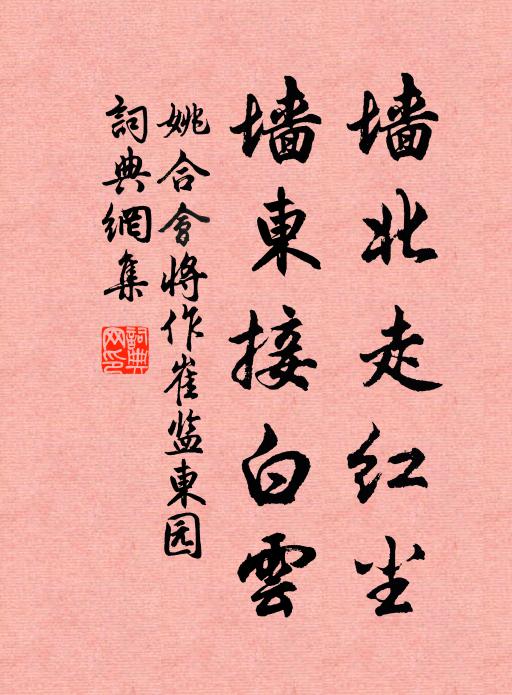 墙北走红尘
墙東接白雲
姚合會将作崔监東园
詞典網集
詞典網印